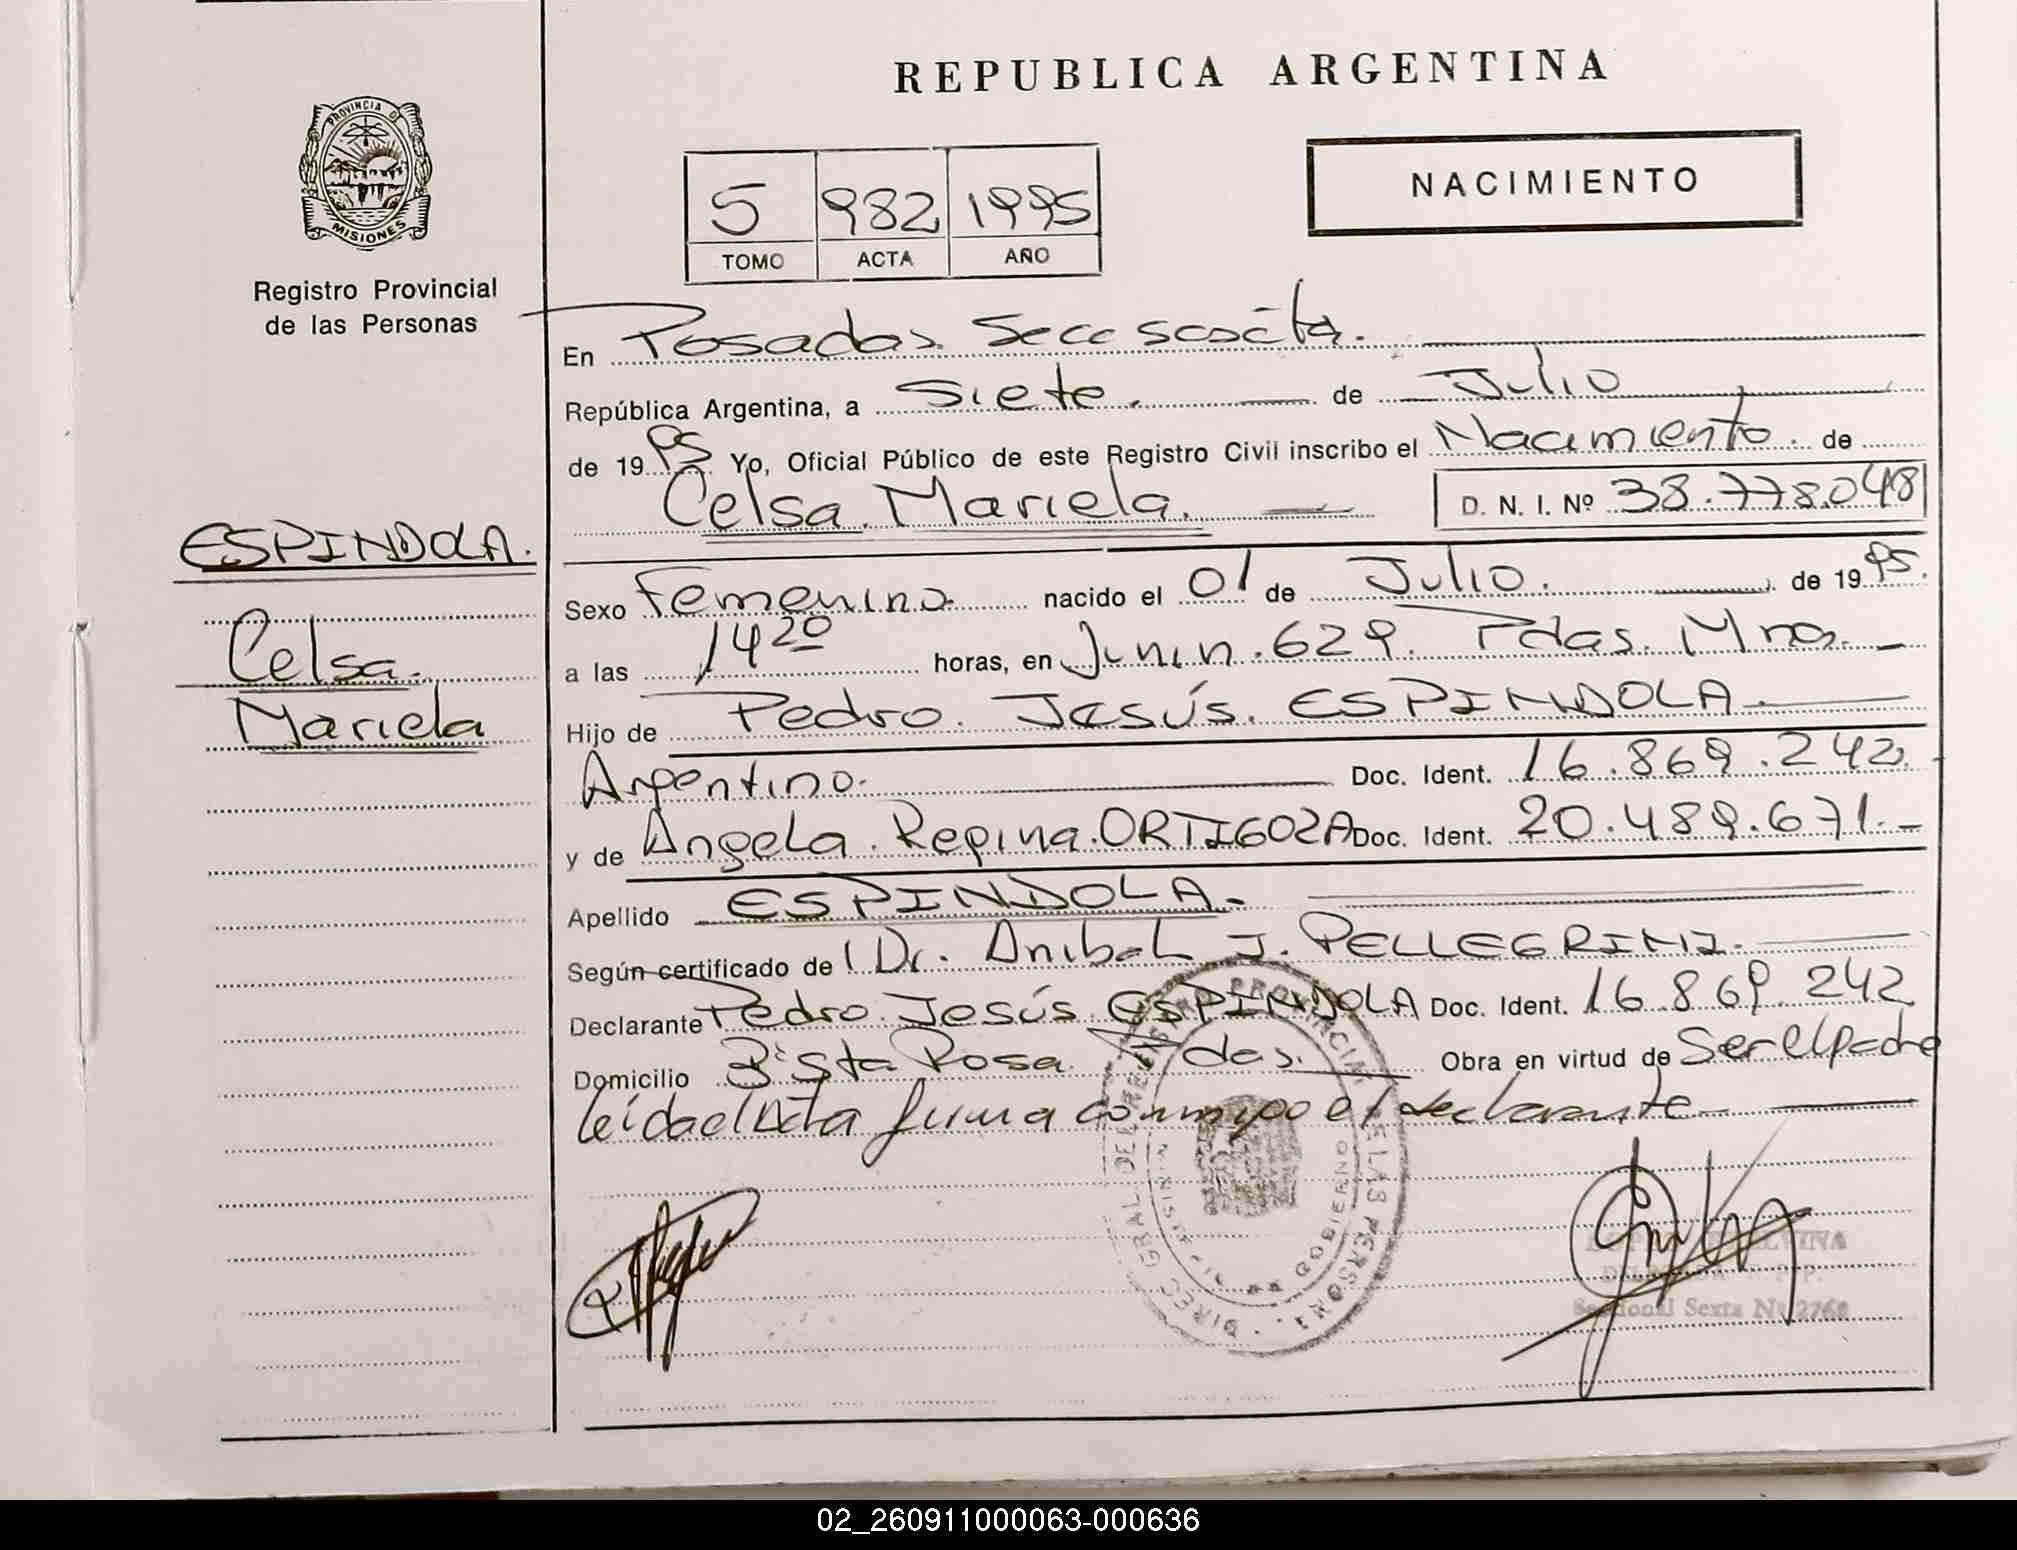 REPUBLICA ARGENTINA
PROVINCIA DE
MISIONES
Registro Provincial
de las Personas
NACIMIENTO
5 982 1995
TOMO ACTA AÑO
En Posadas. Secc
República Argentina, a Siete. de Julio
de 1995 Yo, Oficial Público de este Registro Civil inscribo el Nacimiento. de
Celsa. Mariela. D. N. I. Nº 38.778.048
ESPINDOLA.
Celsa.
Mariela
Sexo Femenino nacido el 01 de Julio. de 1995.
a las 14 20 horas, en Junin. 629. Pdas. Mnes.
Hijo de Pedro. Jesús. ESPINDOLA
Argentino. Doc. Ident. 16.869.242.
y de Angela. Regina. ORTIGOZA Doc. Ident. 20.489.671.-
Apellido ESPINDOLA.-
Según certificado de Dr. Anibal J. PELLEGRINI.
Declarante Pedro. Jesús. ESPINDOLA Doc. Ident. 16.869.242
Domicilio Sta Rosa. Obra en virtud de Ser el padre
leida el Acta firma conmigo el declarante
DIREC. GRAL DEL REGISTRO PROVINCIAL DE LAS PERSONAS
GOBIERNO
Seccional Sexta Nº 2760
02_260911000063-000636